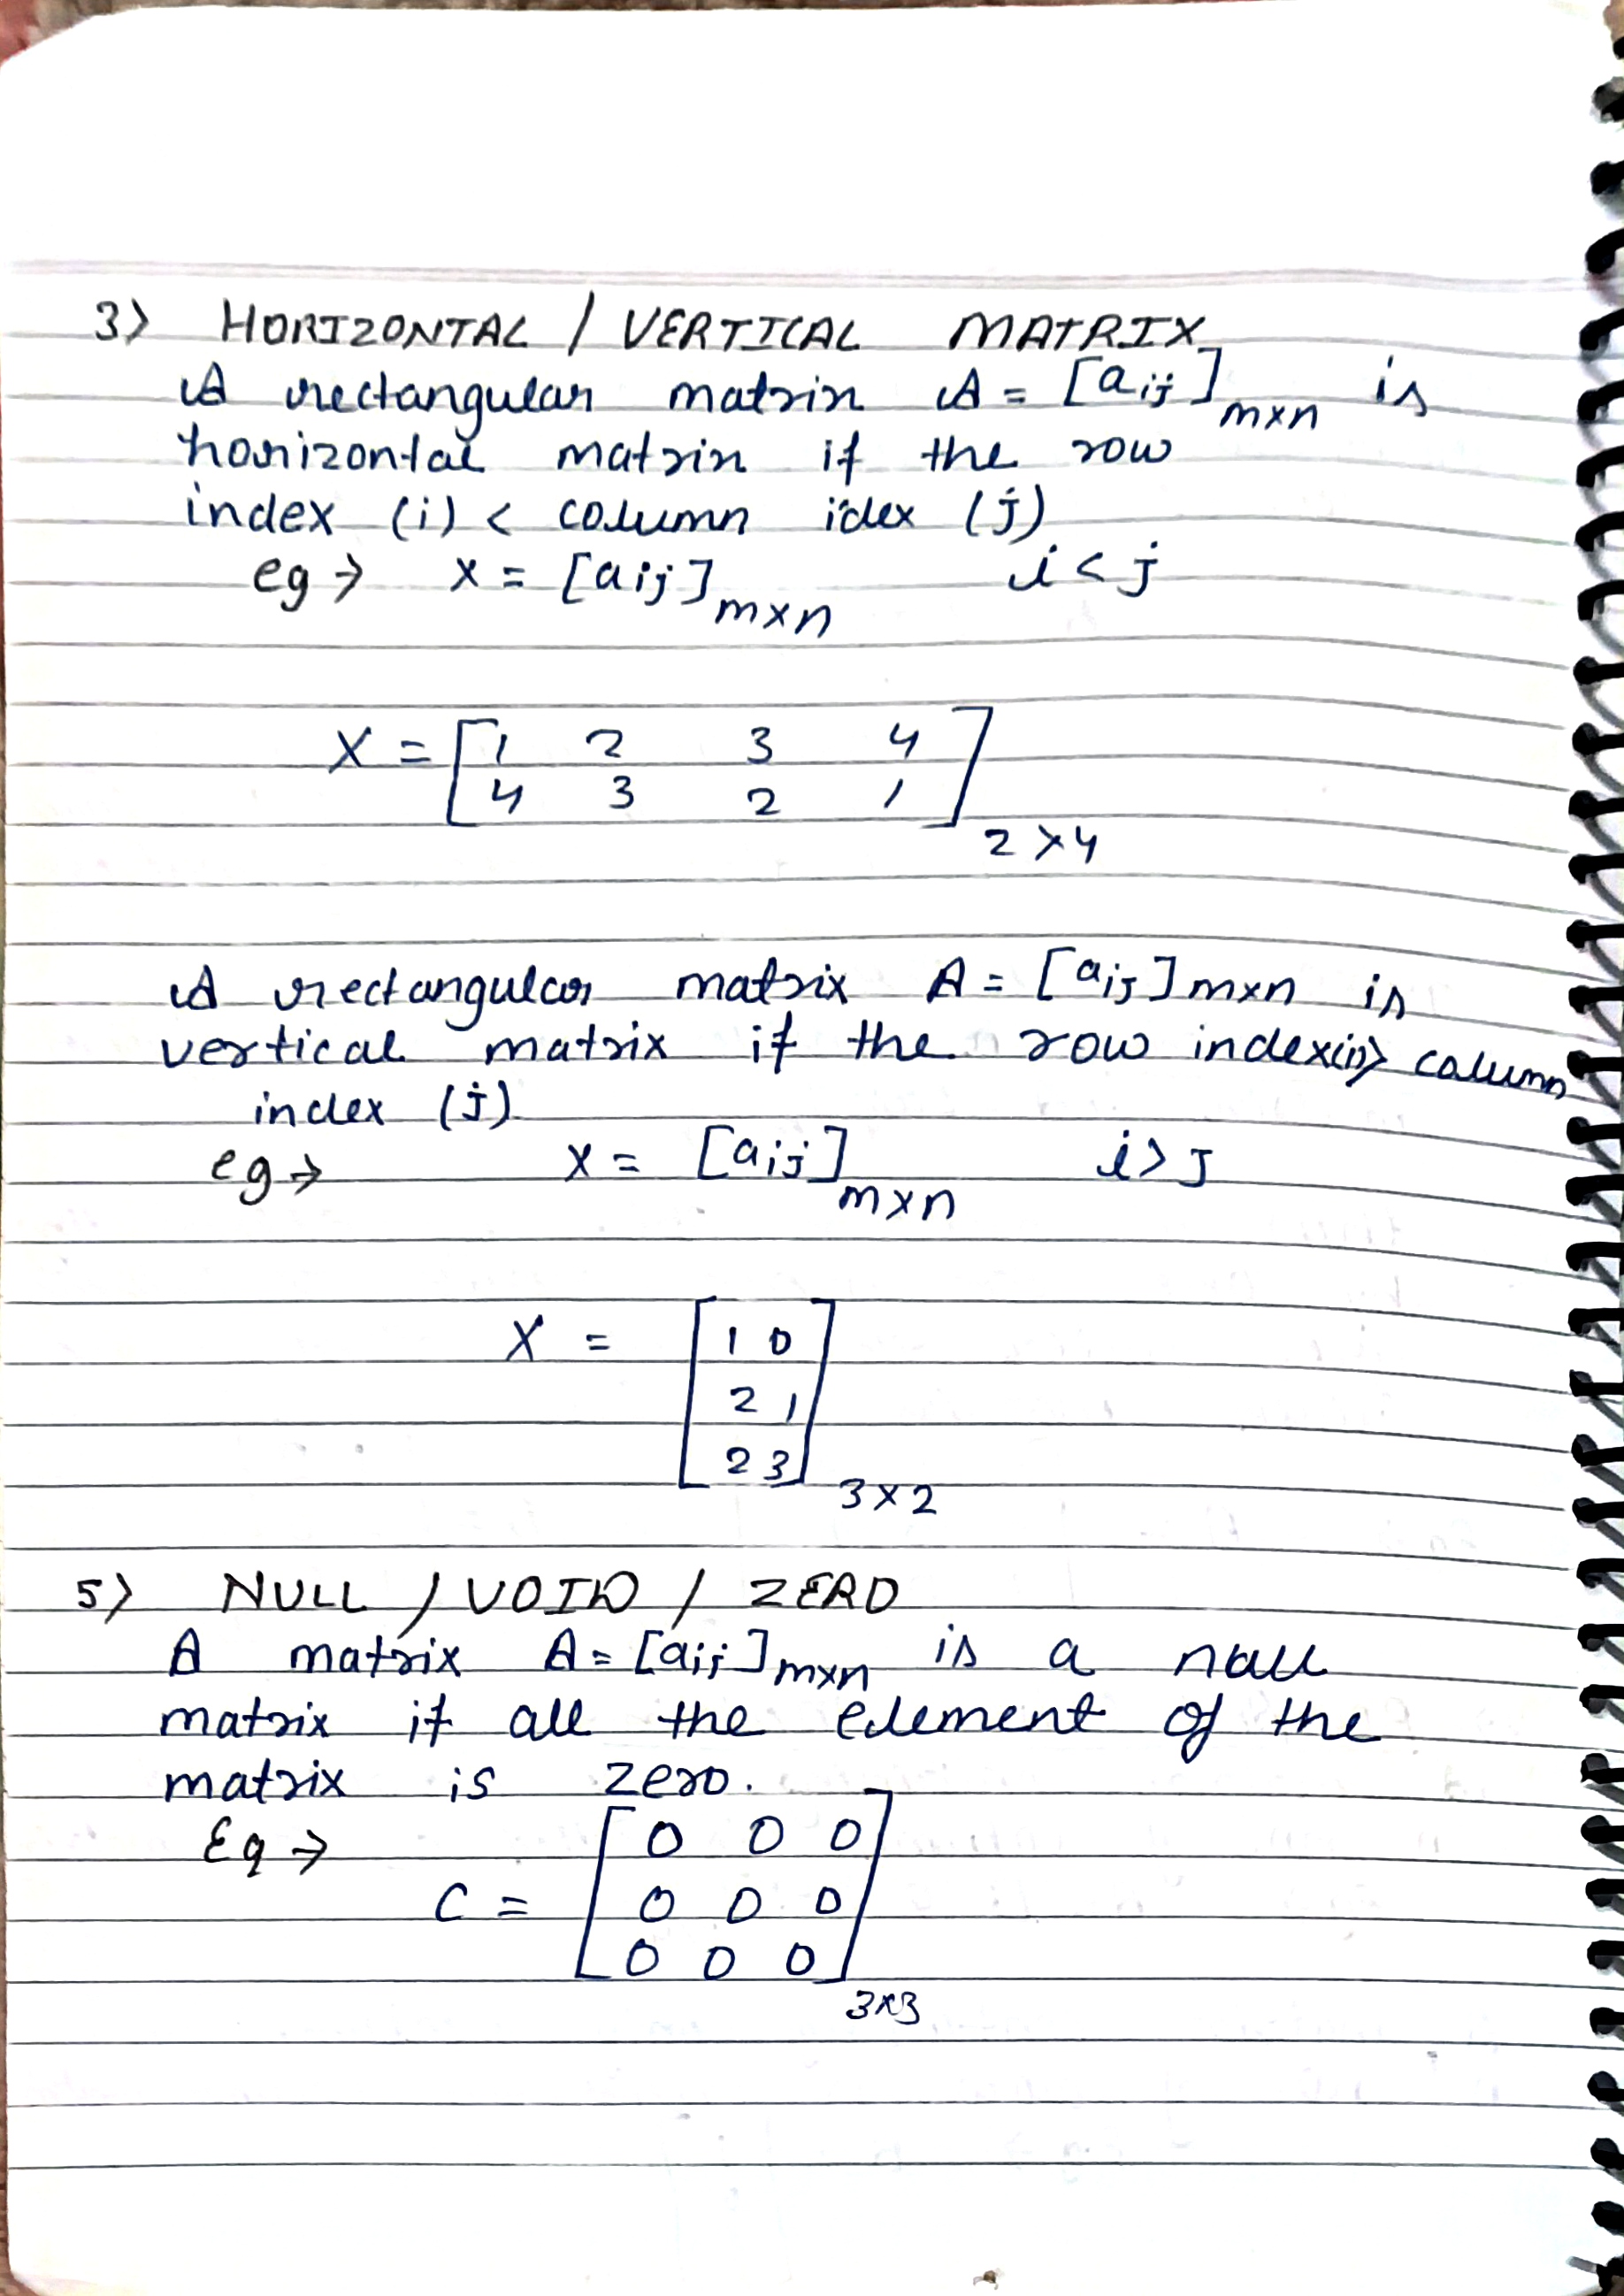 3) HORIZONTAL / VERTICAL MATRIX
A rectangular matrix A = [aij]m×n is
horizontal matrix if the row
index (i) < column idex (j)
eg → X = [aij]m×n i < j
X = [1 2 3 4
4 3 2 1]2×4
A rectangular matrix A = [aij]m×n is
vertical matrix if the row index(i) > column
index (j)
eg → X = [aij]m×n i > j
X = [1 0
2 1
2 3]3×2
5) NULL / VOID / ZERO
A matrix A = [aij]m×n is a null
matrix if all the element of the
matrix is zero.
Eg →
C = [0 0 0
0 0 0
0 0 0]3×3